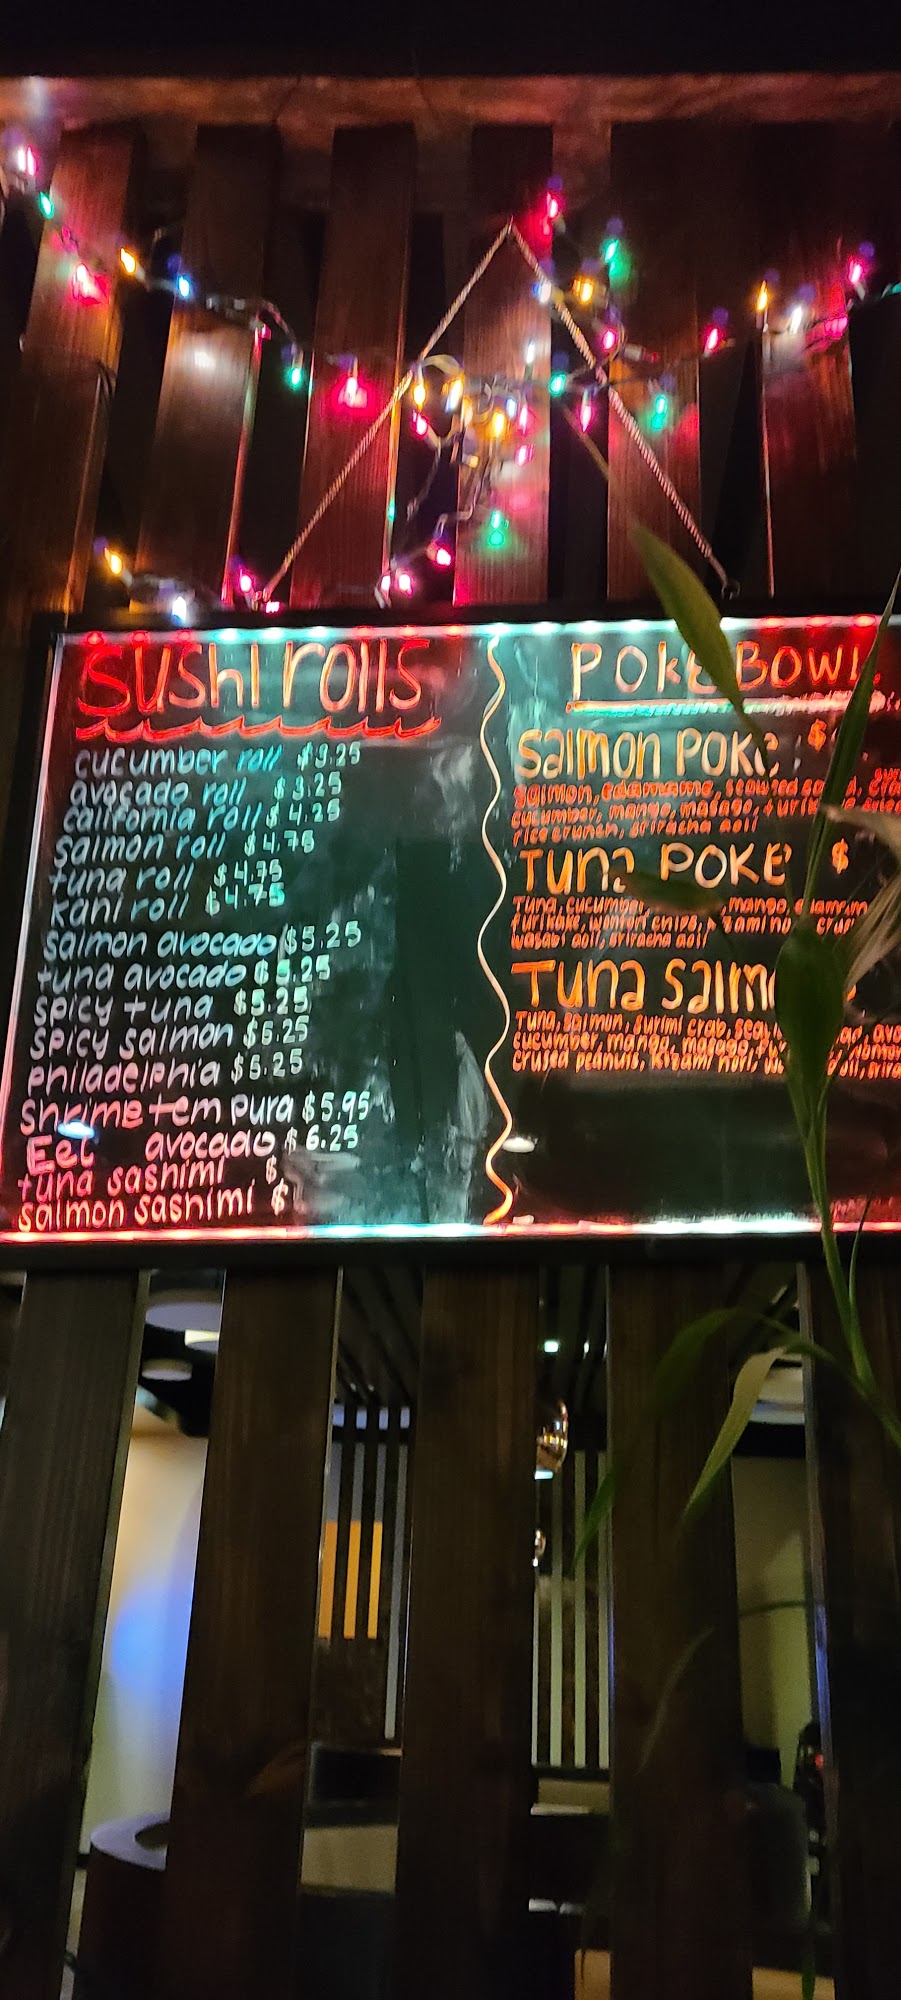 Sushi rolls
cucumber roll $3.25
avocado roll $3.25
california roll $4.25
salmon roll $4.75
tuna roll $4.75
kani roll $4.75
salmon avocado $5.25
tuna avocado $5.25
spicy tuna $5.25
spicy salmon $5.25
philadelphia $5.25
shrimp tempura $5.95
Eel avocado $6.25
tuna sashimi $
salmon sashimi $
POKE BOWL
Salmon POKE $
salmon, edamame, seaweed salad,
cucumber, mango, masago,
rice crunch, sriracha aoli
Tuna POKE $
Tuna, cucumber, mango,
furikake, wonton chips,
wasabi aoli, sriracha aoli
Tuna Salm
Tuna, salmon, surimi crab,
cucumber, mango, masago,
crused peanuts, kizami nori,